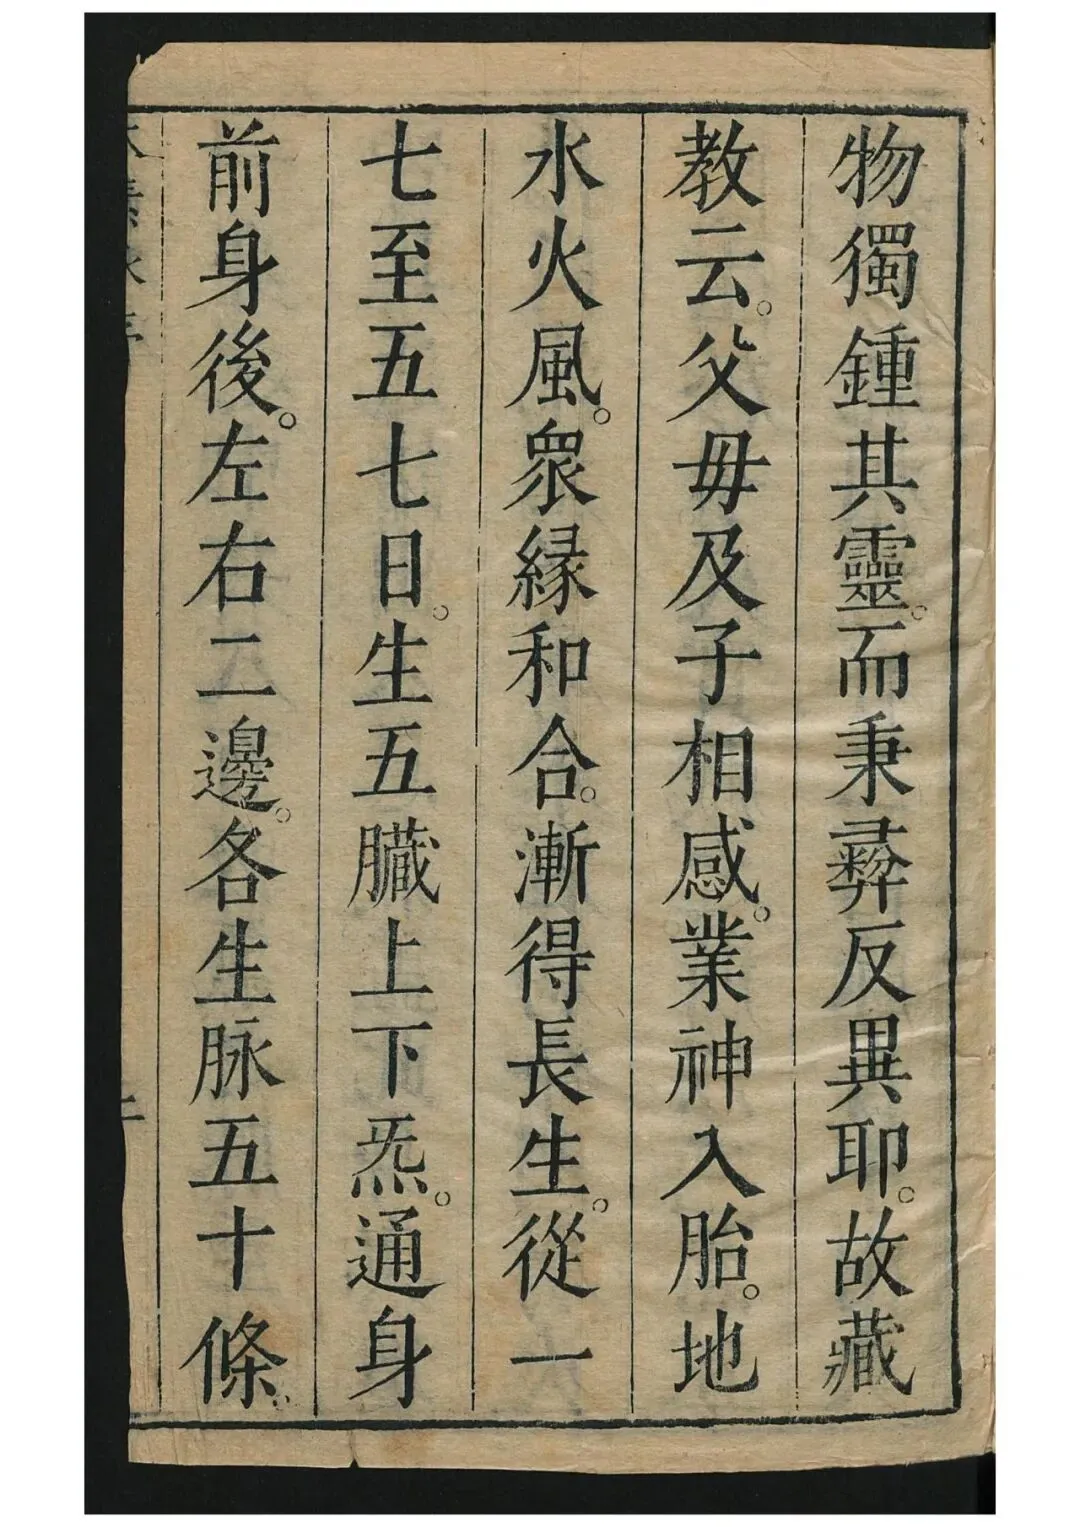 物獨鍾其靈。而秉彜反異耶。故藏
教云。父母及子相感。業神入胎。地
水火風。衆緣和合。漸得長生。從一
七至五七日。生五臟上下炁。通身
前身後。左右二邊。各生脉五十條。